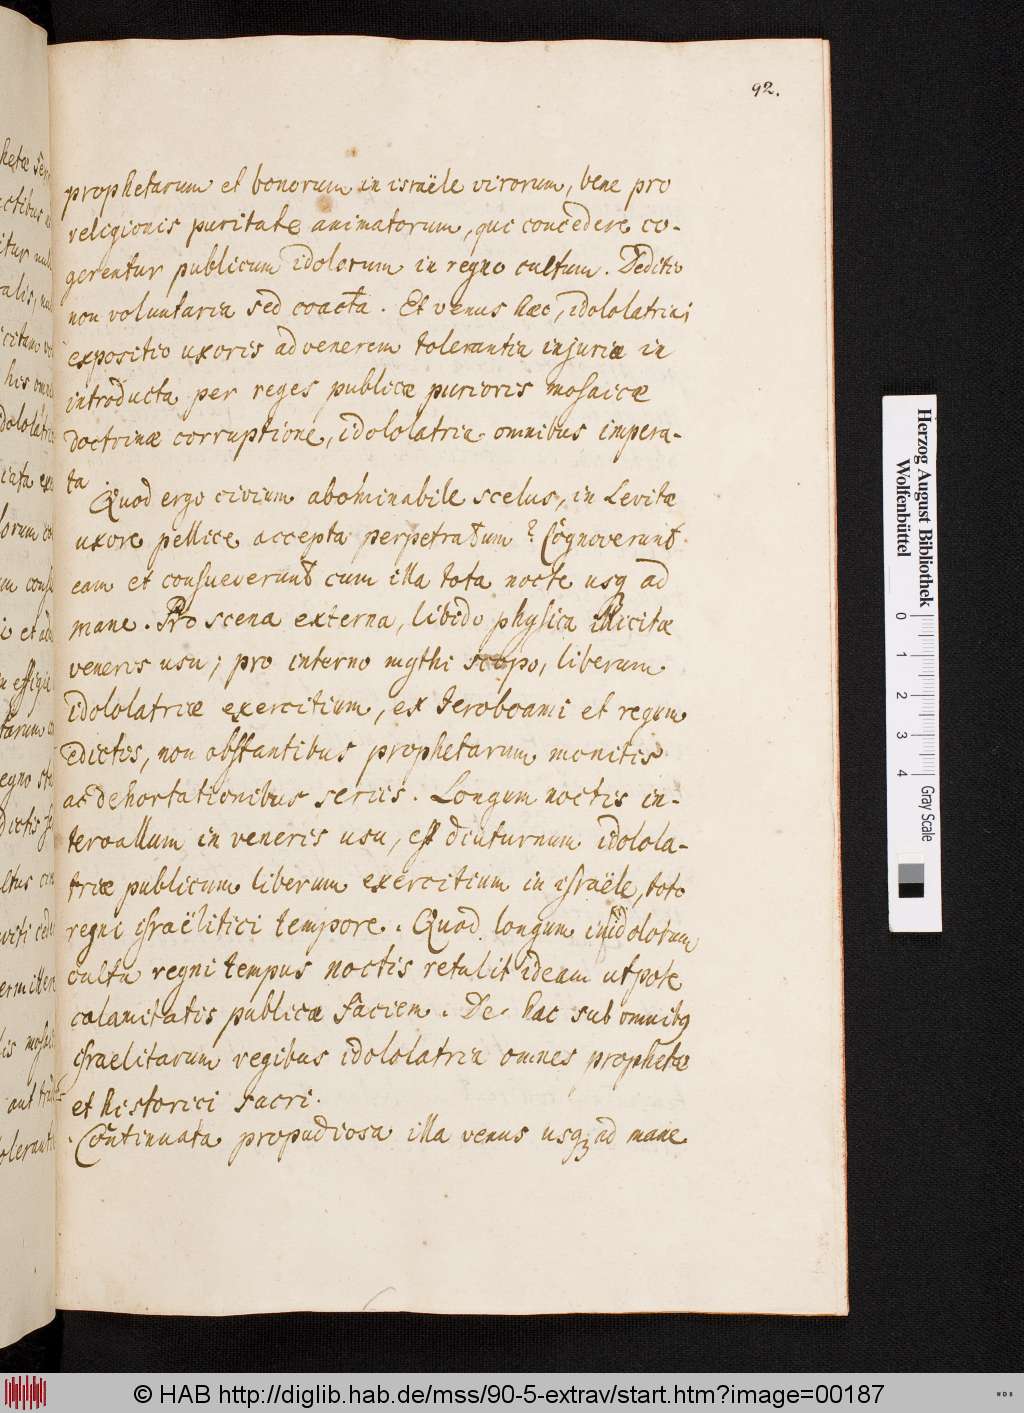 92.
prophetarum et bonorum in israële virorum, bene pro
religionis puritate animatorum, qui concedere co-
gerentur publicum idolorum in regno cultum. Deditio
non voluntaria sed coacta. Et venus haec, idololatria;
expositio uxoris ad venerem tolerantia injuriae in
introducta per reges publicae purioris mosaicae
doctrinae corruptione, idololatria omnibus impera-
ta.
Quod ergo civium abominabile scelus, in Levitae
uxore pellice accepta perpetratum? Cognoverunt
eam et consueverunt cum illa tota nocte usq ad
mane. Pro scena externa, libido physica illicitae
veneris usu; pro interno mythi scopo, liberum
idololatriae exercitium, ex Jeroboami et regum
edictis, non obstantibus prophetarum monitis
ac dehortationibus seriis. Longum noctis in-
tervallum in veneris usu, est diuturnum idolola-
triae publicum liberum exercitium in israële, toto
regni israëlitici tempore. Quod longum in idolorum
cultu regni tempus noctis retulit ideam utpote
calamitatis publicae faciem. De hac sub omnibq
israelitarum regibus idololatria omnes prophetae
et historici sacri.
Continuata propudiosa illa venus usq ad mane
Herzog August Bibliothek
Wolfenbüttel
0 1 2 3 4
Gray Scale
© HAB http://diglib.hab.de/mss/90-5-extrav/start.htm?image=00187